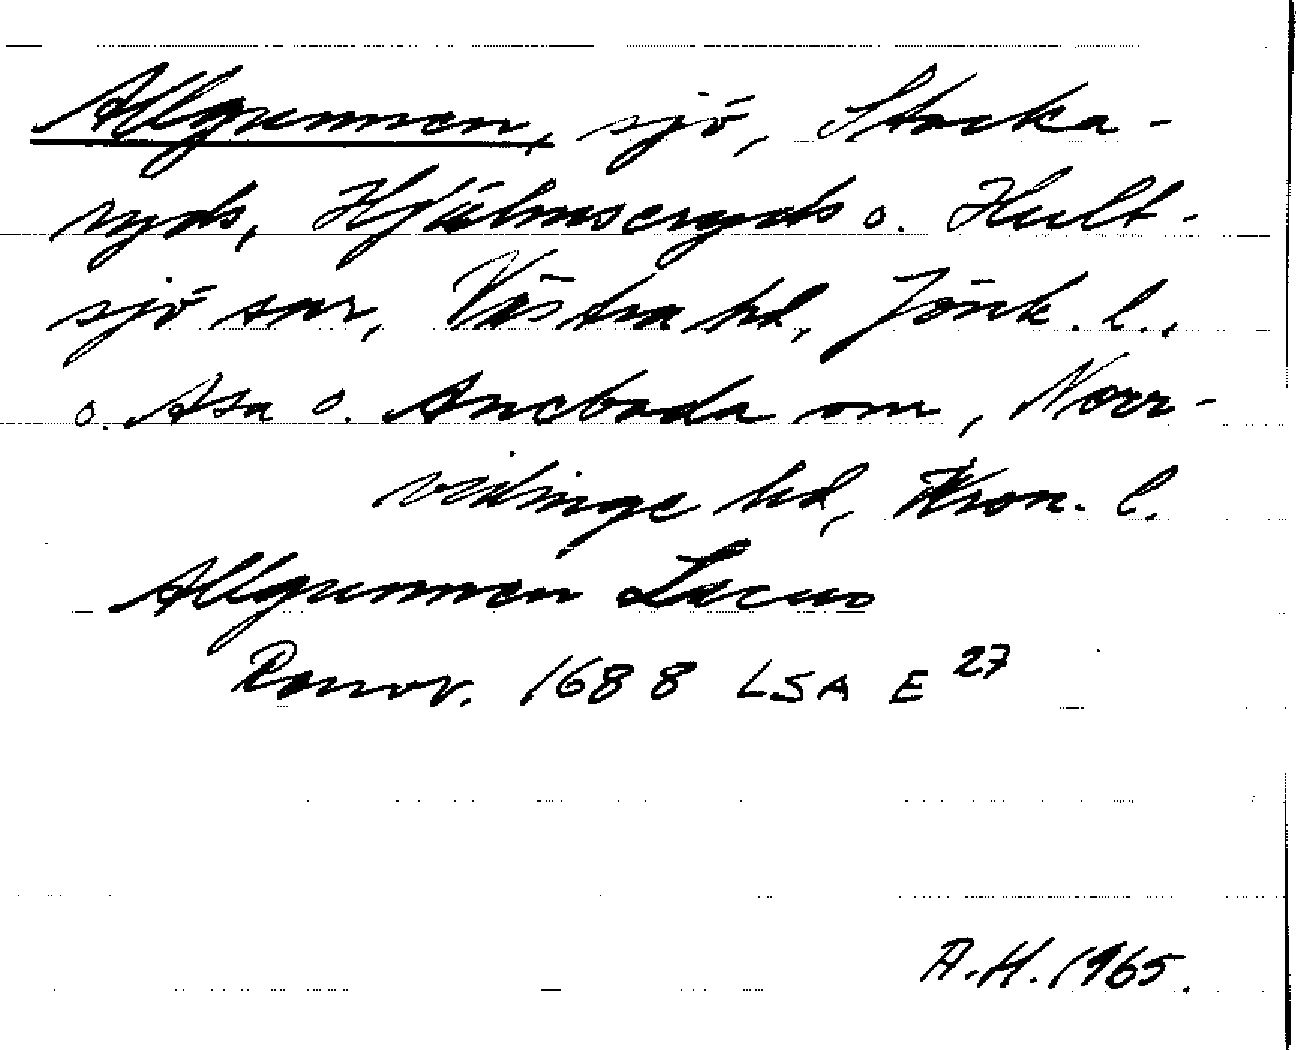 Allgunnen, sjö, Stocka-
ryds, Hjälmseryds o. Hult-
sjö snr, Västra hd, Jönk. l.,
o. Asa o. Aneboda snr, Norr-
vidinge hd, Kron. l.
Allgunnen Lacus
Rannv. 1688 LSA E 27
A.H. 1965.